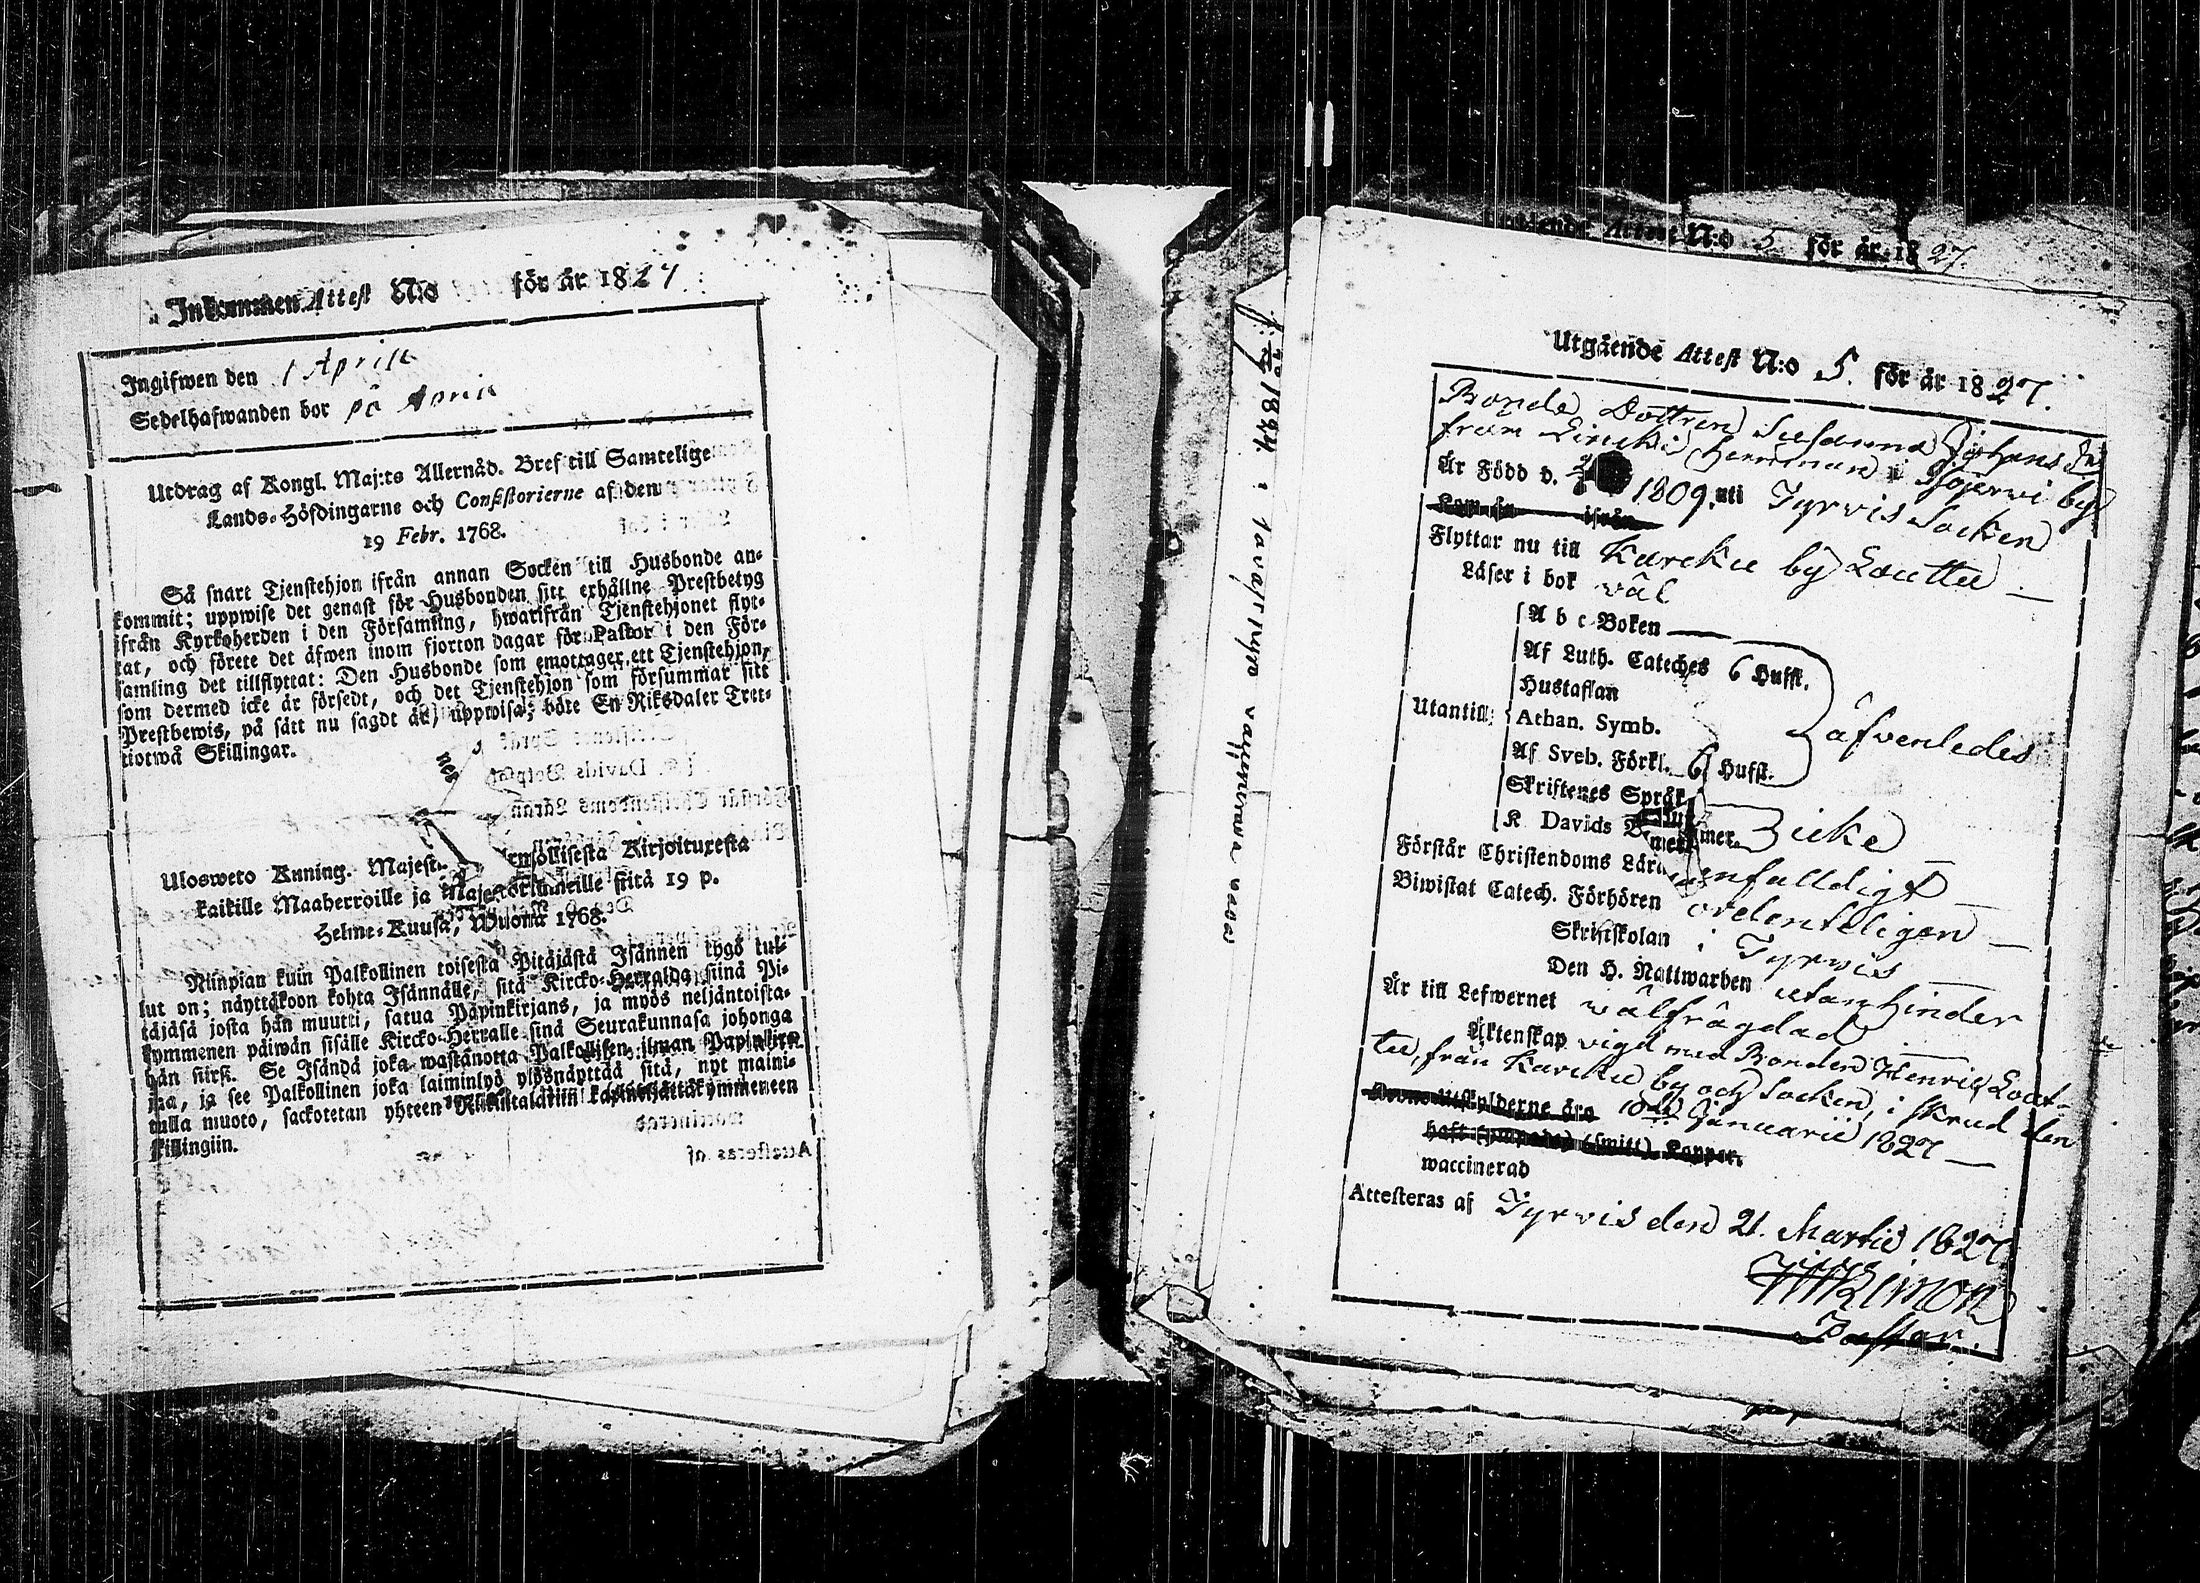 Inkommen Attest N:o för år 1827
Ingifwen den 1 April
Sedelhafwanden bor på
Utdrag af Kongl. Maj:ts Allernåd. Bref till Samtelige
Lands-Höfdingarne och Consistorierne af den
19 Febr. 1768.
Så snart Tjenstehjon ifrån annan Socken till Husbonde an-
kommit; uppwise det genast för Husbonden sitt erhållne Prestbetyg
ifrån Kyrkoherden i den Församling, hwarifrån Tjenstehjonet flyt-
tat, och förete det äfwen inom fjorton dagar för Pastor i den För-
samling det tillflyttat: Den Husbonde som emottager ett Tjenstehjon,
som dermed icke är försedt, och det Tjenstehjon som försummar sitt
Prestbewis, på sätt nu sagdt är, uppwisa; böte En Riksdaler Tret-
tiotwå Skillingar.
Ulosweto Kuning. Majest. Kirjoituxesta
kaikille Maaherroille ja siitä 19 p.
Helme-Kuusa, Wuona 1768.
Niinpian kuin Palkollinen toisesta Pitäjästä Isännen tygö tul-
lut on; näyttäkoon kohta Isännälle, sitä Kircko-Herralda siinä Pi-
täjäsä josta hän muutti, saatua Papinkirjans, ja myös neljäntoista-
kymmenen päiwän sisälle Kircko-Herralle sinä Seurakunnasa johonga
hän siirsi. Se Isändä joka wastanotta Palkollisen ilman Papinkirja
ita, ja see Palkollinen joka laiminlyö ylösnäyttää sitä, nyt maini-
tulla muoto, sackotetan yhteen Riikintalariin kahteenneljättäkymmeneen
skillingiin.
för år 1827.
Utgående Attest N:o 5. för år 1827.
Bonde Dottren Susanna Johans Dr
från Hemman i by
Är Född d. 1809. uti Tyrvis Socken
Flyttar nu till Karcku by Louttu
Läser i bok väl
Utantill:
A b c-Boken
Af Luth. Cateches 6 Hufst.
Hustaflan
Athan. Symb. äfvenledes
Af Sveb. Förkl. 6 Hufst.
Skriftenes Språk
K Davids icke
Förstår Christendoms Läran enfalldigt
Biwistat Catech. Förhören ordenteligen
Skriftskolan i Tyrvis
Den H. Nattwarden utan hinder
Är till Lefwernet wälfrägdad
Äktenskap vigd med Bonden Henric Lout-
tu, från Karcku by och Socken, i skrud den
10de Januarii 1827
waccinerad
Attesteras af Tyrvis den 21. Martii 1827
Pastor.